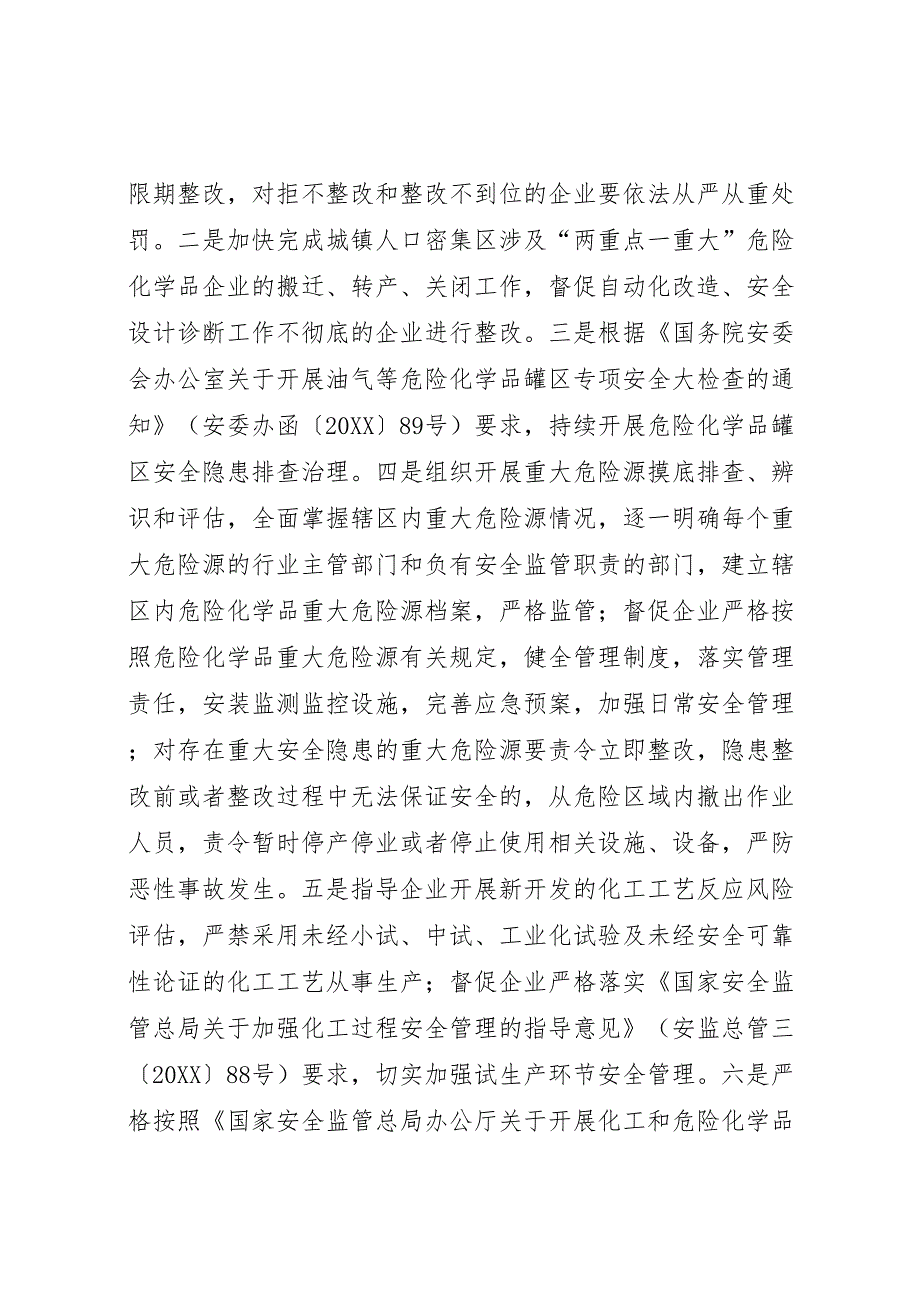 限期整改，对拒不整改和整改不到位的企业要依法从严从重处
罚。二是加快完成城镇人口密集区涉及“两重点一重大”危险
化学品企业的搬迁、转产、关闭工作，督促自动化改造、安全
设计诊断工作不彻底的企业进行整改。三是根据《国务院安委
会办公室关于开展油气等危险化学品罐区专项安全大检查的通
知》（安委办函〔20XX〕89号）要求，持续开展危险化学品罐
区安全隐患排查治理。四是组织开展重大危险源摸底排查、辨
识和评估，全面掌握辖区内重大危险源情况，逐一明确每个重
大危险源的行业主管部门和负有安全监管职责的部门，建立辖
区内危险化学品重大危险源档案，严格监管；督促企业严格按
照危险化学品重大危险源有关规定，健全管理制度，落实管理
责任，安装监测监控设施，完善应急预案，加强日常安全管理
；对存在重大安全隐患的重大危险源要责令立即整改，隐患整
改前或者整改过程中无法保证安全的，从危险区域内撤出作业
人员，责令暂时停产停业或者停止使用相关设施、设备，严防
恶性事故发生。五是指导企业开展新开发的化工工艺反应风险
评估，严禁采用未经小试、中试、工业化试验及未经安全可靠
性论证的化工工艺从事生产；督促企业严格落实《国家安全监
管总局关于加强化工过程安全管理的指导意见》（安监总管三
〔20XX〕88号）要求，切实加强试生产环节安全管理。六是严
格按照《国家安全监管总局办公厅关于开展化工和危险化学品